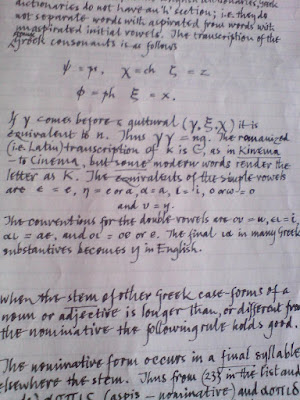 dictionaries do not have an 'h' section; i.e. they do
not separate words with aspirated from words with
unaspirated initial vowels. The transcription of the
Greek consonants is as follows
ψ = ps, χ = ch ζ = z
φ = ph ξ = x.
If γ comes before a guttural (γ, ξ, χ) it is
equivalent to n. Thus γγ = ng. The romanized
(i.e. Latin) transcription of k is C, as in Kinema
- to Cinema, but some modern words render the
letter as K. The equivalents of the simple vowels
are ε = e, η = e or a, α = a, ι = i, o or ω = o
and υ = y.
The conventions for the double vowels are ου = u, ει = i,
αι = ae, and οι = oe or e. The final ια in many Greek
substantives becomes y in English.
When the stem of other Greek case-forms of a
noun or adjective is longer than, or different from
the nominative the following rule holds good.
The nominative form occurs in a final syllable
elsewhere the stem. Thus from (23) in the list and
(aspis - nominative) and